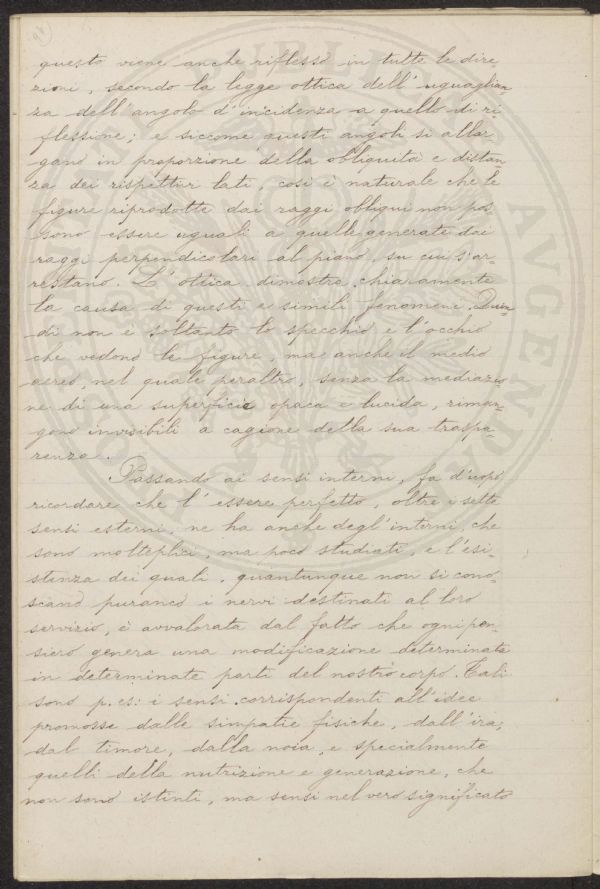 questo viene anche riflesso in tutte le dire
zioni, secondo la legge ottica dell'uguaglian
za dell'angolo d'incidenza a quello di ri
flessione; e siccome questi angoli si allar
gano in proporzione della obliquità e distan-
za dei rispettivi lati, così è naturale che le
figure riprodotte dai raggi obliqui non pos-
sono essere uguali a quelle generate dai
raggi perpendicolari al piano, su cui s'ar-
restano. L'ottica dimostra chiaramente
la causa di questi e simili fenomeni. Quin
di non è soltanto lo specchio e l'occhio
che vedono le figure, ma anche il medio
aereo, nel quale peraltro, senza la mediazio
ne di una superficie opaca e lucida, riman-
gono invisibili a cagione della sua traspa-
renza.
Passando ai sensi interni, fa d'uopo
ricordare che l'essere perfetto, oltre i sette
sensi esterni, ne ha anche degl'interni, che
sono molteplici, ma poco studiati, e l'esi-
stenza dei quali, quantunque non si cono-
scano puranco i nervi destinati al loro
servizio, è avvalorata dal fatto che ogni pen-
siero genera una modificazione determinata
in determinate parti del nostro corpo. Tali
sono p. es: i sensi corrispondenti all'idee
promosse dalle simpatie fisiche, dall'ira,
dal timore, dalla noia, e specialmente
quelli della nutrizione e generazione, che
non sono istinti, ma sensi nel vero significato